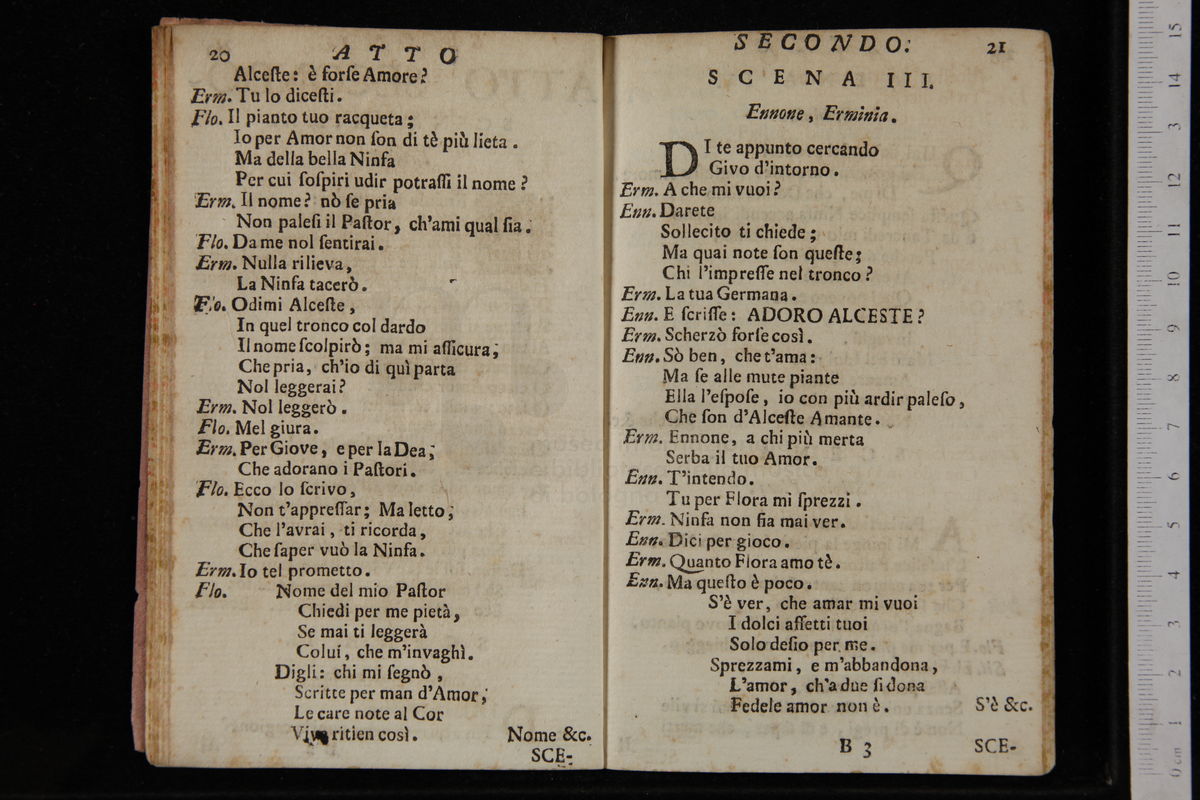 20 ATTO
Alceſte: è forſe Amore?
Erm. Tu lo diceſti.
Flo. Il pianto tuo racqueta;
Io per Amor non ſon di tè più lieta.
Ma della bella Ninfa
Per cui ſoſpiri udir potraſſi il nome?
Erm. Il nome? nò ſe pria
Non paleſi il Paſtor, ch'ami qual ſia.
Flo. Da me nol ſentirai.
Erm. Nulla rilieva,
La Ninfa tacerò.
Flo. Odimi Alceſte,
In quel tronco col dardo
Il nome ſcolpirò; ma mi aſſicura,
Che pria, ch'io di quì parta
Nol leggerai?
Erm. Nol leggerò.
Flo. Mel giura.
Erm. Per Giove, e per la Dea,
Che adorano i Paſtori.
Flo. Ecco lo ſcrivo,
Non t'appreſſar; Ma letto,
Che l'avrai, ti ricorda,
Che ſaper vuò la Ninfa.
Erm. Io tel prometto.
Flo. Nome del mio Paſtor
Chiedi per me pietà,
Se mai ti leggerà
Colui, che m'invaghì.
Digli: chi mi ſegnò,
Scritte per man d'Amor,
Le care note al Cor
Vive ritien così. Nome &c.
SCE-
SECONDO. 21
SCENA III.
Ennone, Erminia.
DI te appunto cercando
Givo d'intorno.
Erm. A che mi vuoi?
Enn. Darete
Sollecito ti chiede;
Ma quai note ſon queſte;
Chi l'impreſſe nel tronco?
Erm. La tua Germana.
Enn. E ſcriſſe: ADORO ALCESTE?
Erm. Scherzò forſe così.
Enn. Sò ben, che t'ama:
Ma ſe alle mute piante
Ella l'eſpoſe, io con più ardir paleſo,
Che ſon d'Alceſte Amante.
Erm. Ennone, a chi più merta
Serba il tuo Amor.
Enn. T'intendo.
Tu per Flora mi ſprezzi.
Erm. Ninfa non ſia mai ver.
Enn. Dici per gioco.
Erm. Quanto Flora amo tè.
Enn. Ma queſto è poco.
S'è ver, che amar mi vuoi
I dolci affetti tuoi
Solo deſio per me.
Sprezzami, e m'abbandona,
L'amor, ch'a due ſi dona
Fedele amor non è. S'è &c.
B 3 SCE-
0 cm 1 2 3 4 5 6 7 8 9 10 11 12 13 14 15